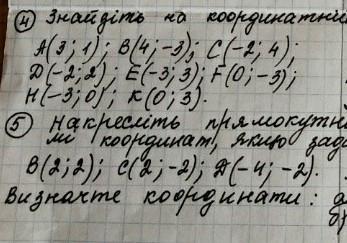 ④ Знайдіть на координатній
A(3; 1); B(4; -3); C(-2; 4);
D(-2; 2); E(-3; 3); F(0; -3);
H(-3; 0); K(0; 3).
⑤ Накресліть
координат, якщо
B(2; 2); C(2; -2); D(-4; -2).
Визначте координати: